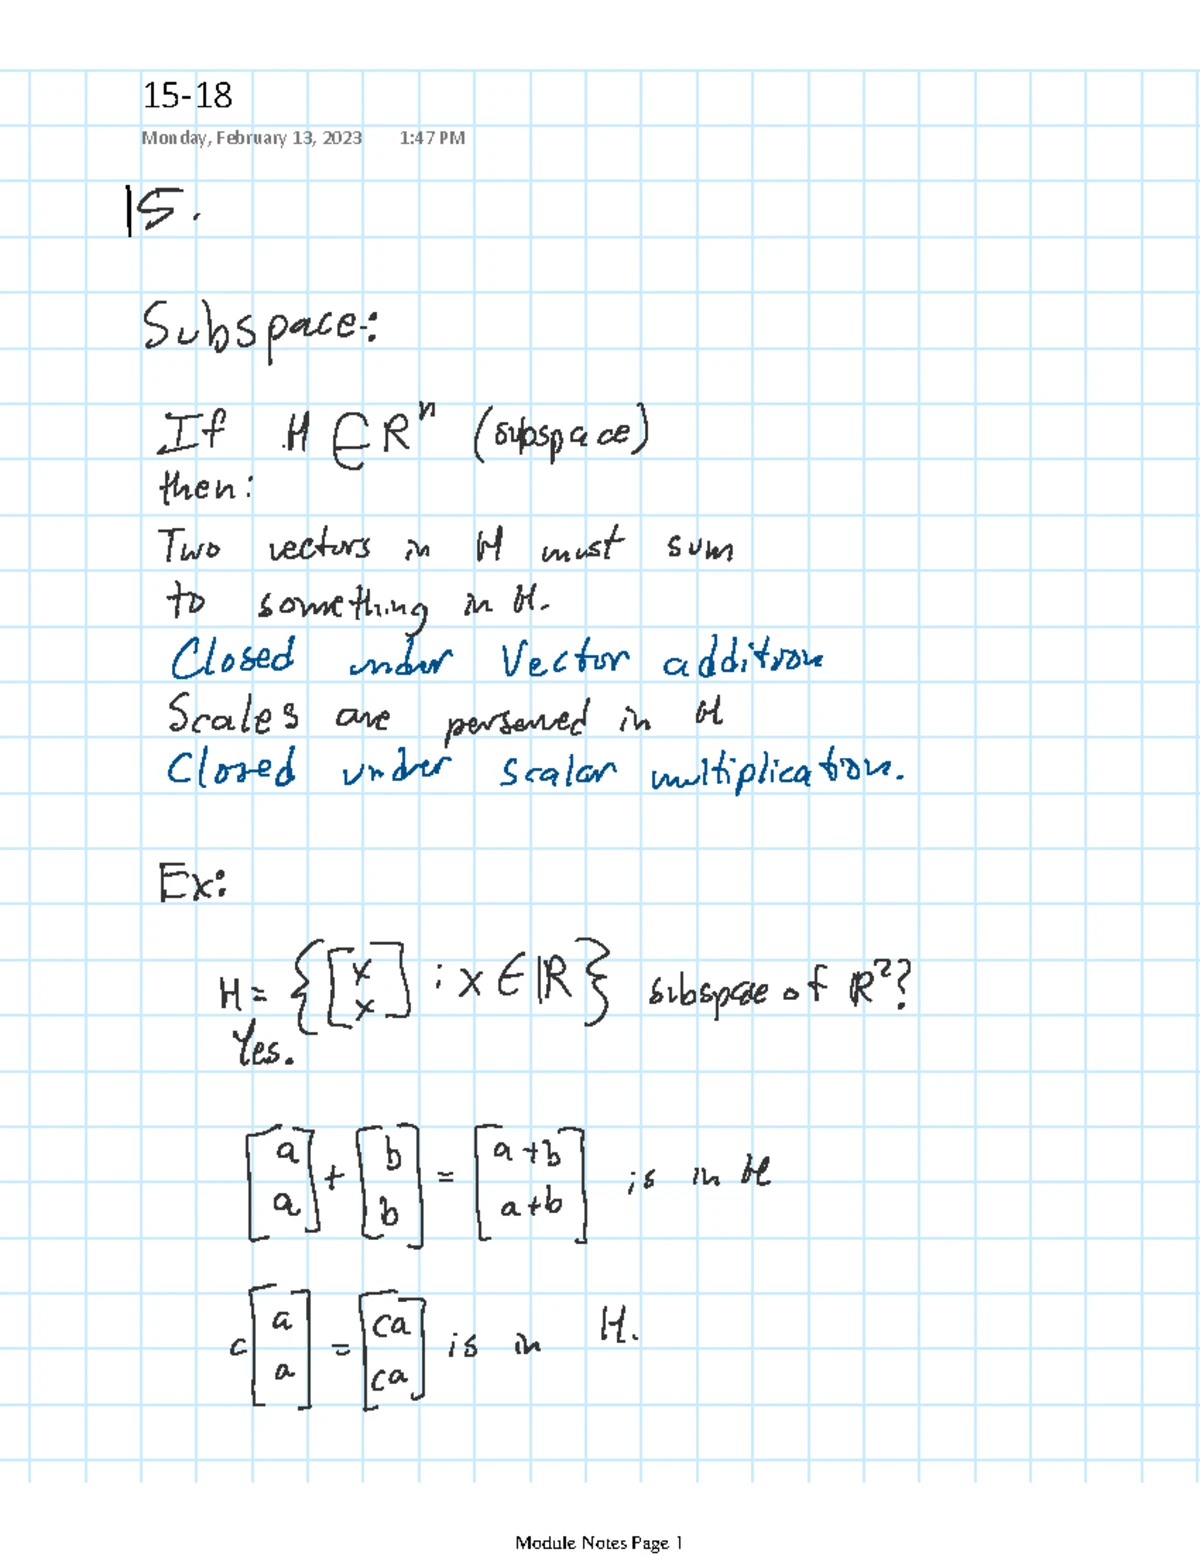 15-18
Monday, February 13, 2023 1:47 PM
15.
Subspace:
If H ∈ R^n (subspace)
then:
Two vectors in H must sum
to something in H.
Closed under Vector addition
Scales are perserved in H
Closed under scalar multiplication.
Ex:
H = {[x x] : x ∈ ℝ} subspae of ℝ²?
Yes.
[a a] + [b b] = [a+b a+b] is in H
c[a a] = [ca ca] is in H.
Module Notes Page 1